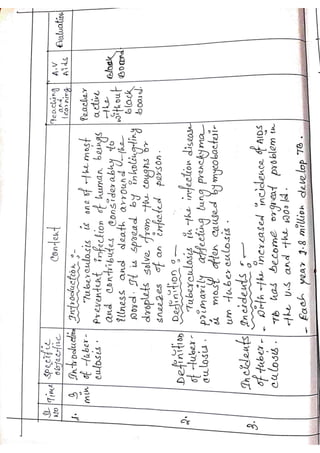 S.
No
Time
Specific
objective
Content
Teaching
and
learning
A.V
Aids
Evaluation
1.
3
min
Introduction
of tuber-
culosis.
Introduction :-
Tuberculosis is one of the most
Preventent infection of human beings
and contributes considerably to
illness and death arround the
word. It is spread by inholingting
droplets solve from the coughs or
sneezes of an infected person.
Teacher
active
the
without
black
board.
Black
Board
2.
Definition
of tuber-
culosis.
Definition :-
Tuberculosis in the infection diseas
primarily affecting lung prenchyma
is most often caused by mycobacteri-
um tuberculosis.
3.
Incidents
of tuber-
culosis.
Incidents :-
- Both the increased incidence of AIDS
TB has become orgreat problem in
the U.S and the world.
- Each year 1.8 million develop TB.